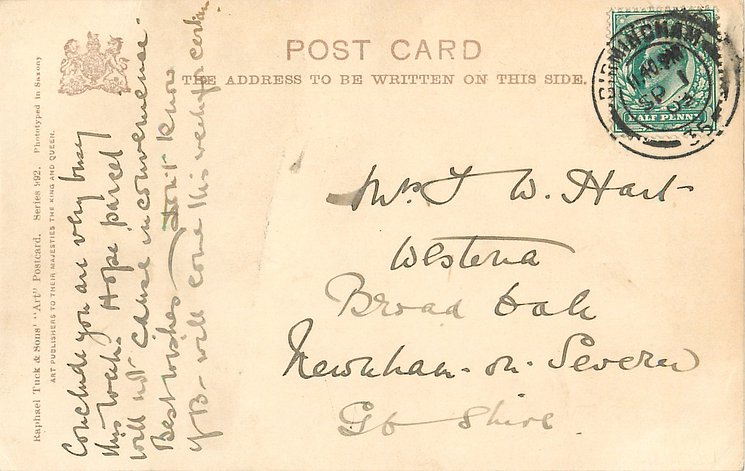 POST CARD
THE ADDRESS TO BE WRITTEN ON THIS SIDE.
BIRMINGHAM
11.40 PM
SP 1
03
35
HALF PENNY
Mrs T W. Hart
Westena
Broad Oak
Newnham-on-Severn
Shire.
Raphael Tuck & Sons' "Art" Postcard. Series 992. Phototyped in Saxony
ART PUBLISHERS TO THEIR MAJESTIES THE KING AND QUEEN.
Conclude you are very busy
this week. Hope parcel
will not cause inconvenience.
Best wishes — Don't know
if B- will come this week for certain.